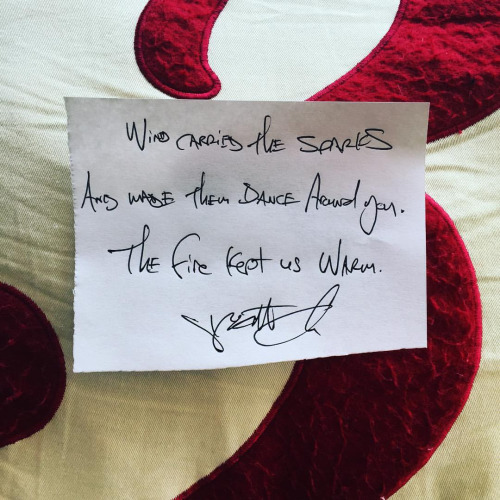 Wind carried the sparks
And made them dance around you.
The fire kept us warm.